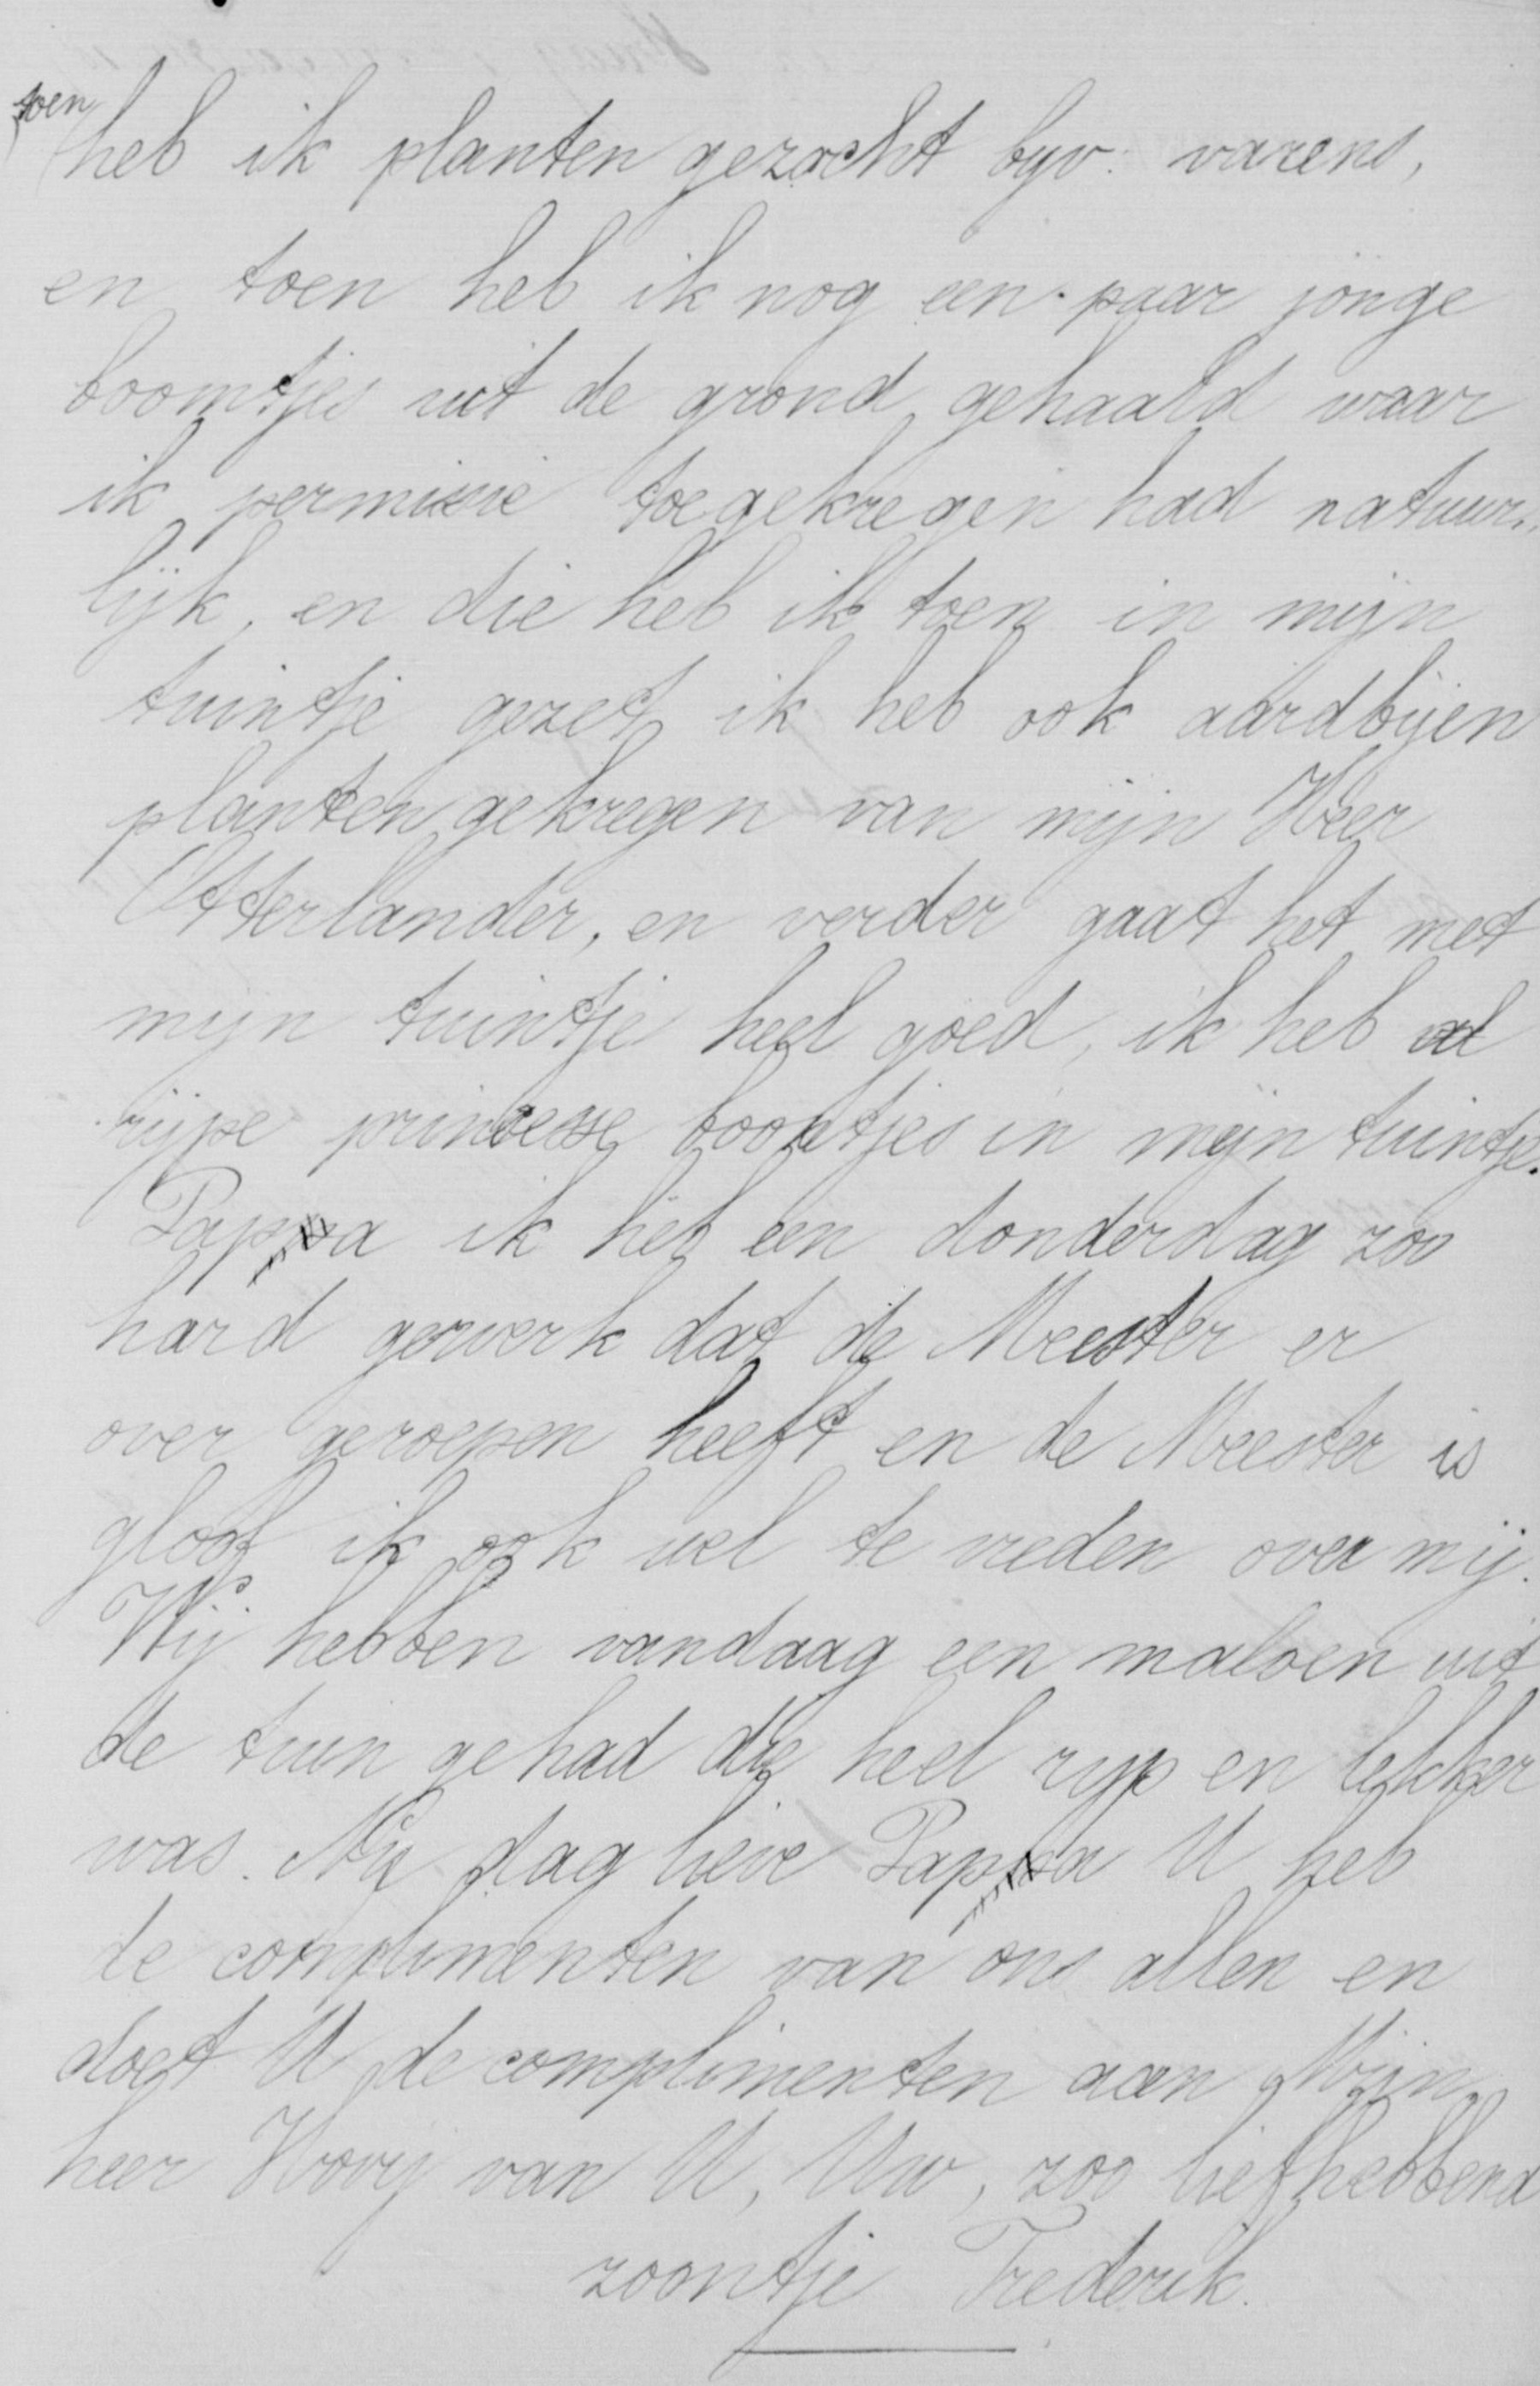 toen
heb ik planten gezocht byv. varens,
en toen heb ik nog een paar jonge
boomtjes uit de grond gehaald waar
ik permissie toegekregen had natuur„
lijk, en die heb ik toen in mijn
tuintje gezet ik heb ook aardbijen
planten gekregen van mijn Heer
Otterlander, en verder gaat het met
mijn tuintje heel goed, ik heb al
rijpe princesse boontjes in mijn tuintje.
Pappa ik heb een donderdag zoo
hard gewerk dat de Meester er
over geroepen heeft en de Meester is
gloof ik ook wel te vreden over mij.
Wij hebben vandaag een maloen uit
de tuin gehad die heel ryp en lekker
was. Nu dag lieve Pappa U heb
de complimenten van ons allen en
doet U de complimenten aan Mijn
heer Hovy van U, Uw, zoo liefhebbend
zoontje Frederik.